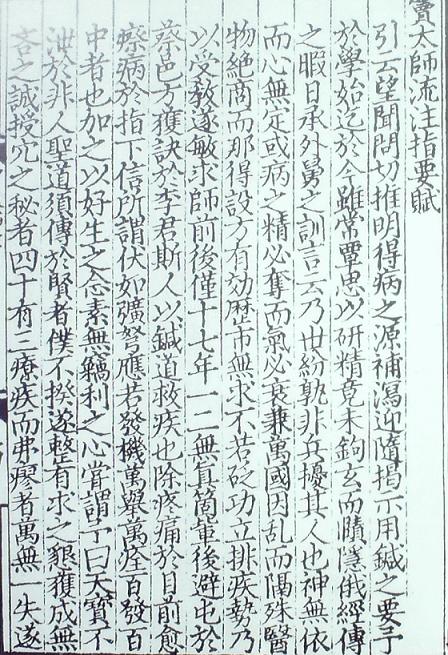 竇太師流注指要賦
引云望聞問切推明得病之源補瀉迎隨揭示用鍼之要予
於學始迄於今雖常覃思以研精竟未鉤玄而賾隱俄經傳
之暇日承外舅之訓言云乃世紛孰非兵擾其人也神無依
而心無定或病之精必奪而氣必衰兼萬國因乱而隔殊醫
物絶商而那得設方有効歷市無求不若砭功立排疾勢乃
以受教遂敏求師前後僅十七年一二無真箇輩後避屯於
蔡邑方獲訣於李君斯人以鍼道救疾也除疼痛於目前愈
瘵病於指下信所謂伏如彍弩應若發機萬舉萬痊百發百
中者也加之以好生之念素無竊利之心嘗謂予曰天寶不
泄於非人聖道須傳於賢者僕不揆遂整有求之懇獲成無
吝之誠授穴之秘者四十有三療疾而弗瘳者萬無一失遂